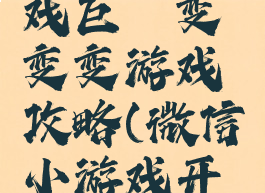 戏巨 变
变变游戏
攻略(微信
小游戏开